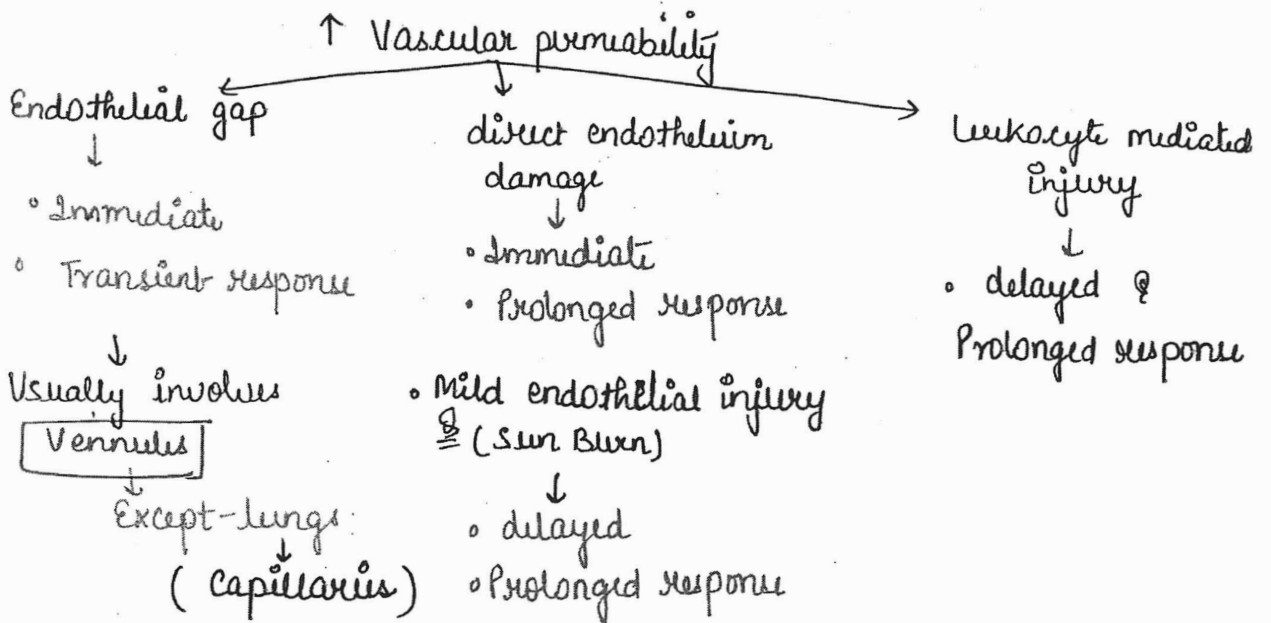 ↑ Vascular permeability
Endothelial gap
↓
• Immediate
• Transient response
↓
Usually involves
Vennules
↓
Except-lungs
↓
(Capillaries)
direct endotheluim
damage
↓
• Immediate
• Prolonged response
• Mild endothelial injury
(Sun Burn)
↓
• delayed
• Prolonged response
Leukocyte mediated
injury
↓
• delayed &
Prolonged response